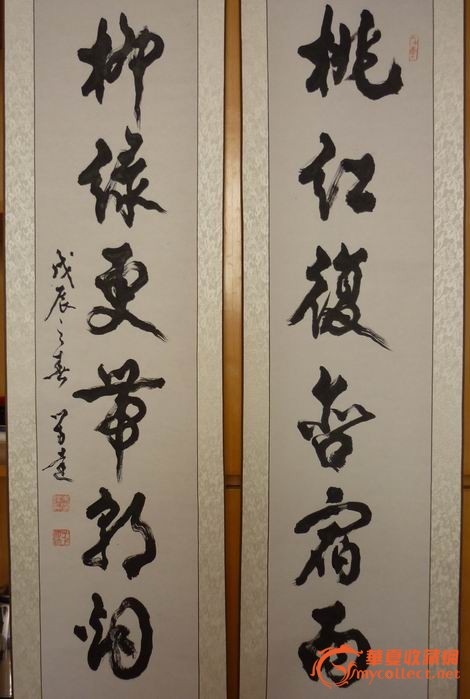 桃紅復含宿雨
柳綠更帶朝烟
戊辰之春
華夏收藏網
mycollect.net